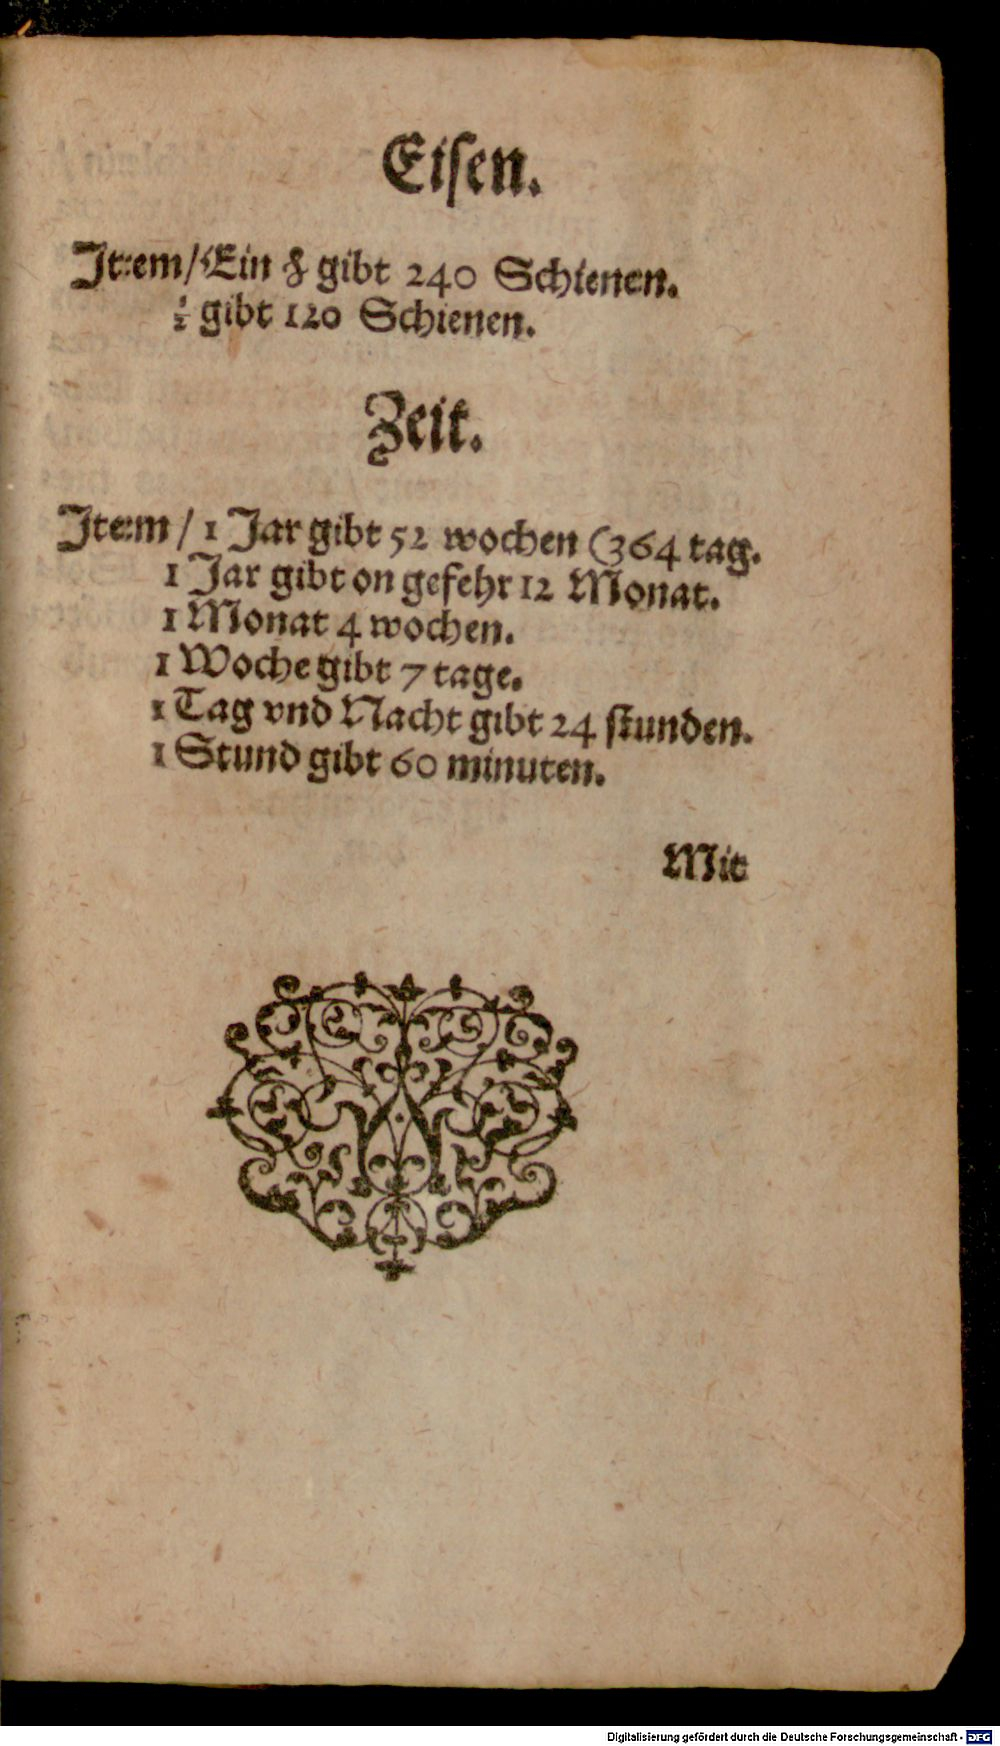 Eiſen.
Jtem/ Ein ℔ gibt 240 Schienen.
½ gibt 120 Schienen.
Zeit.
Jtem / 1 Jar gibt 52 wochen (364 tag.
1 Jar gibt on gefehr 12 Monat.
1 Monat 4 wochen.
1 Woche gibt 7 tage.
1 Tag vnd Nacht gibt 24 ſtunden.
1 Stund gibt 60 minuten.
Mit
Digitalisierung gefördert durch die Deutsche Forschungsgemeinschaft - DFG